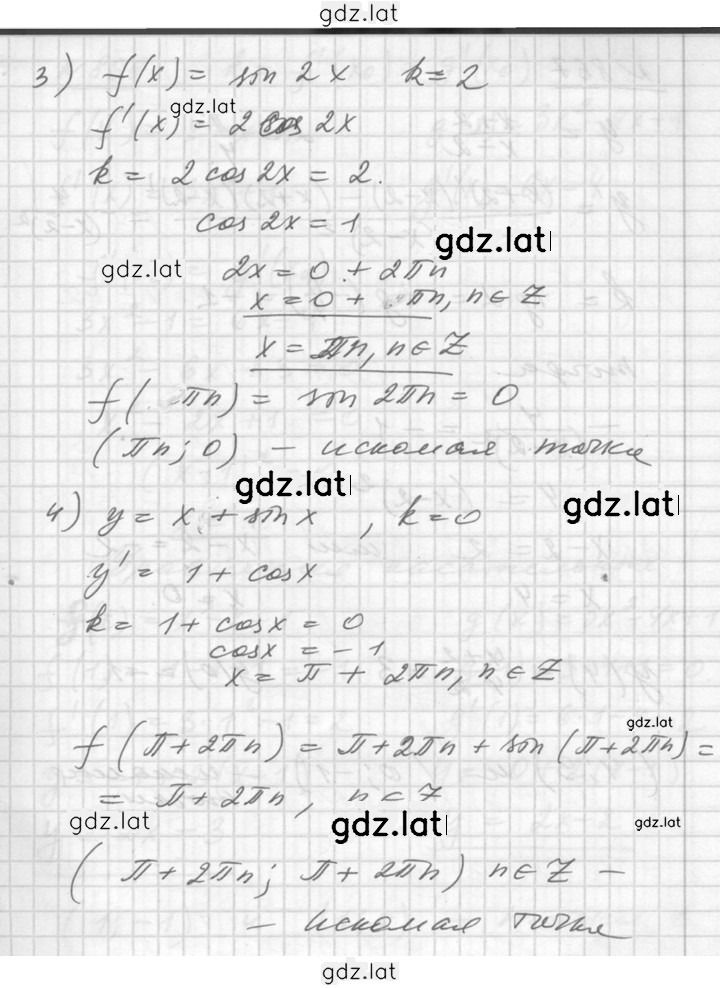 gdz.lat
3) f(x) = sin 2x   k = 2
gdz.lat
f'(x) = 2 cos 2x
k = 2 cos 2x = 2.
cos 2x = 1
gdz.lat
gdz.lat 2x = 0 + 2πn
x = 0 + πn, n ∈ Z
x = πn, n ∈ Z
f( πn) = sin 2πn = 0
(πn; 0) – искомая точка
gdz.lat
gdz.lat
4) y = x + sin x , k = 0
y' = 1 + cos x
k = 1 + cos x = 0
cos x = – 1
x = π + 2πn, n ∈ Z
gdz.lat
f(π + 2πn) = π + 2πn + sin(π + 2πn) =
= π + 2πn, n ∈ Z
gdz.lat gdz.lat gdz.lat
( π + 2πn; π + 2πn) n ∈ Z –
– искомая точка
gdz.lat